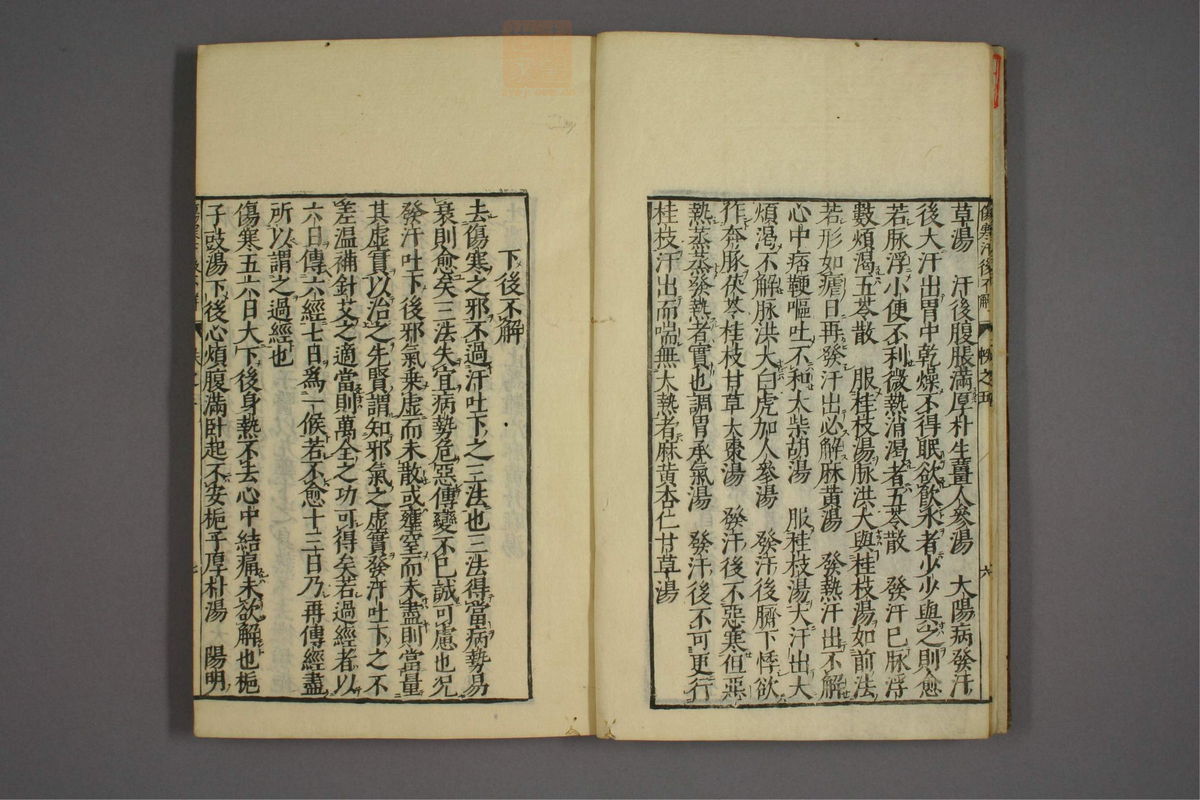 草湯　汗後腹脹滿厚朴生薑人參湯　大陽病發汗
後大汗出胃中乾燥不得眠欲飮水者少少與之則愈
若脉浮小便不利微熱消渴者五苓散　發汗已脉浮
數煩渴五苓散　服桂枝湯脉洪大與桂枝湯如前法
若形如瘧日再發汗出必解麻黄湯　發熱汗出不解
心中痞鞕嘔吐不和大柴胡湯　服桂枝湯大汗出大
煩渴不解脉洪大白虎加人參湯　發汗後臍下悸欲
作奔豚茯苓桂枝甘草大棗湯　發汗後不惡寒但惡
熱蒸蒸發熱者實也調胃承氣湯　發汗後不可更行
桂枝汗出而喘無大熱者麻黄杏仁甘草湯
下後不解
去傷寒之邪不過汗吐下之三法也三法得當病勢易
衰則愈矣三法失宜病勢危惡傳變不已誠可慮也況
發汗吐下後邪氣乗虛而未散或壅窒而未盡則當量
其虛實以治之先賢謂知邪氣之虛實發汗吐下之不
差温補針艾之適當則萬全之功可得矣若過經者以
六日傳六經七日為一候若不愈十三日乃再傳經盡
所以謂之過經也
傷寒五六日大下後身熱不去心中結痛未欲解也梔
子豉湯下後心煩腹滿臥起不安梔子厚朴湯　陽明